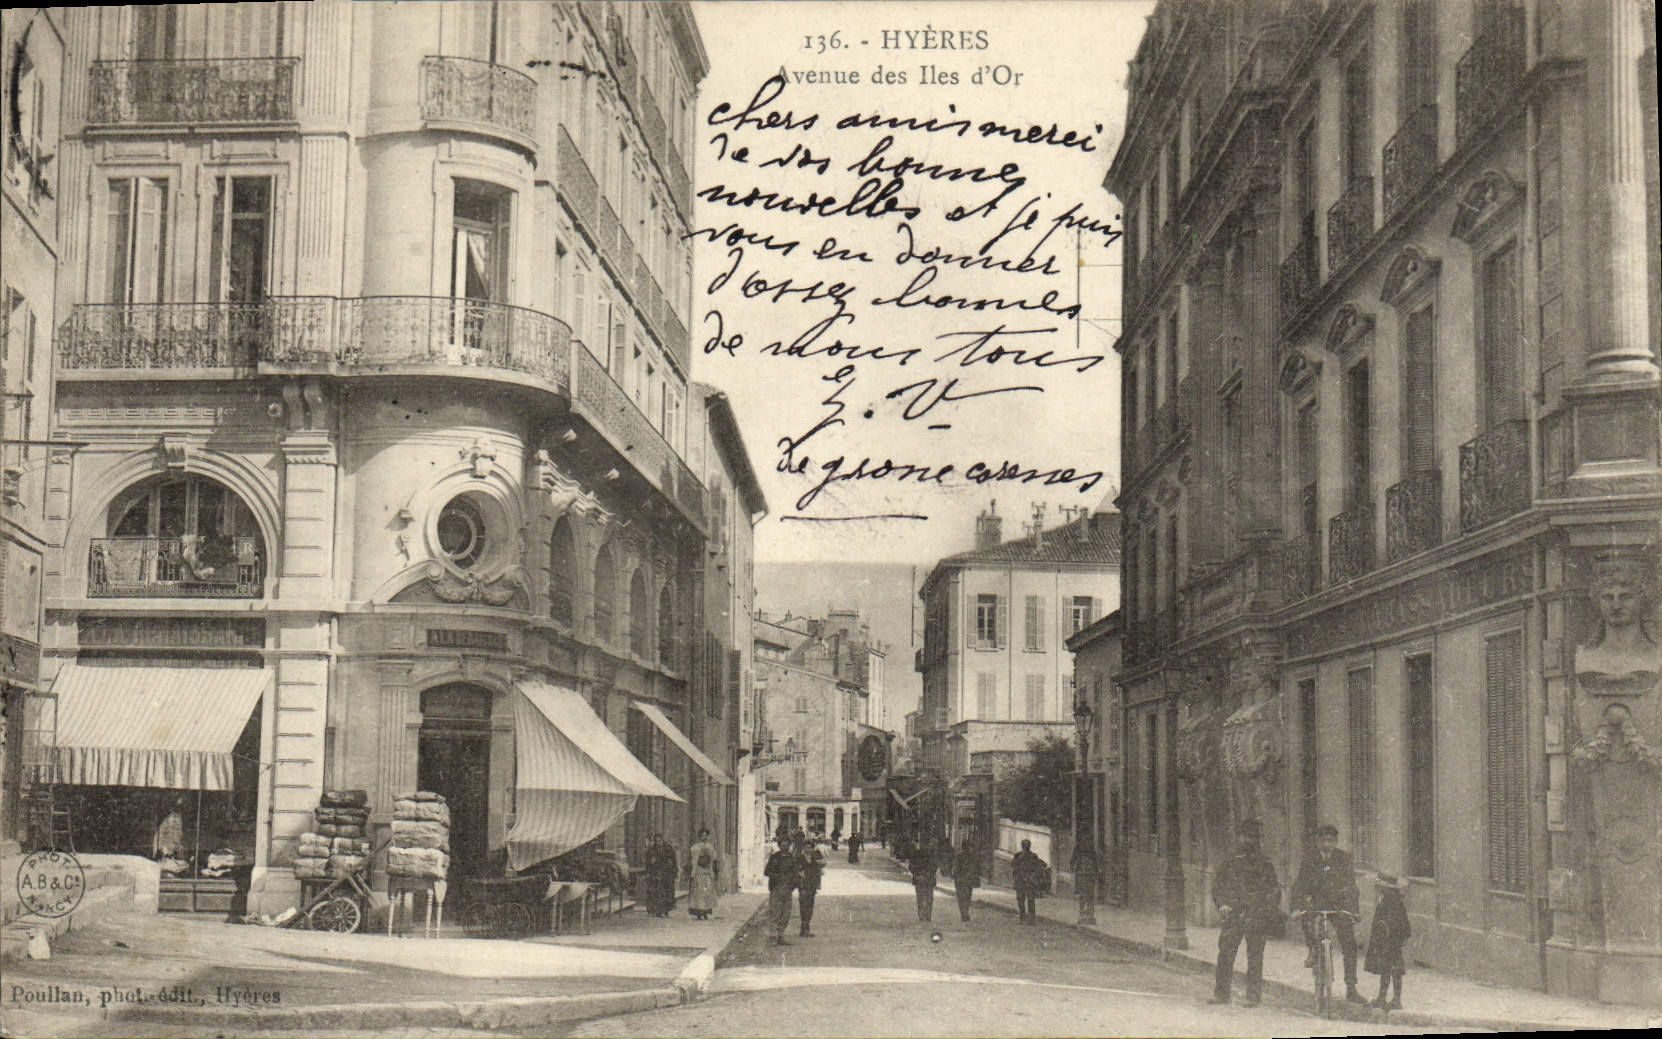 136. - HYÈRES
Avenue des Iles d'Or
chers amis merci
de vos bonnes
nouvelles et je puis
vous en donner
d'assez bonnes
de nous tous
V
de
PHOT.
A.B & Cie
NANCY
Poullan, phot.-édit., Hyères